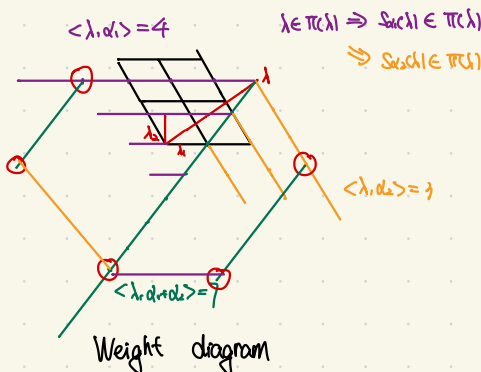 <λ,α₁>=4
λ∈π(λ) ⇒ Sα₁(λ) ∈ π(λ)
⇒ Sα₂(λ) ∈ π(λ)
λ
λ₂
λ₁
<λ,α₂>=3
<λ,α₁+α₂>=7
Weight diagram